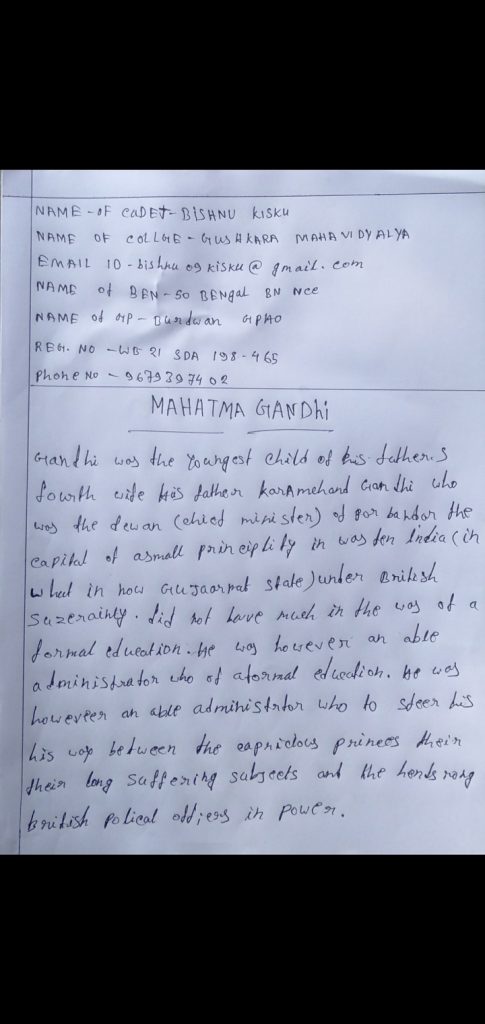 NAME - OF CADET - BISHNU KISKU
NAME OF COLLGE - GUSHKARA MAHAVIDYALYA
EMAIL ID - bishnu09kisku@gmail.com
NAME of BEN - 50 BENgal BN NCC
NAME of GP - Burdwan GPHQ
REG. NO - WB 21 SDA 198-465
Phone No - 9679397402
MAHATMA GANDhi
Gandhi was the Youngest child of his father.s
fourth wife His father Karamchand Gandhi who
was the dewan (chief minister) of por bandor the
capital of asmall principlity in wasten India (in
what in now Gujaarnat state) under British
Suzerainly. did not have much in the way of a
formal education. He was however an able
administrator who of aformal education. He was
howeveer an able administrtor who to steer his
his way between the capridous princes their
their long suffering subjects and the headsrong
british polical offiers in power.